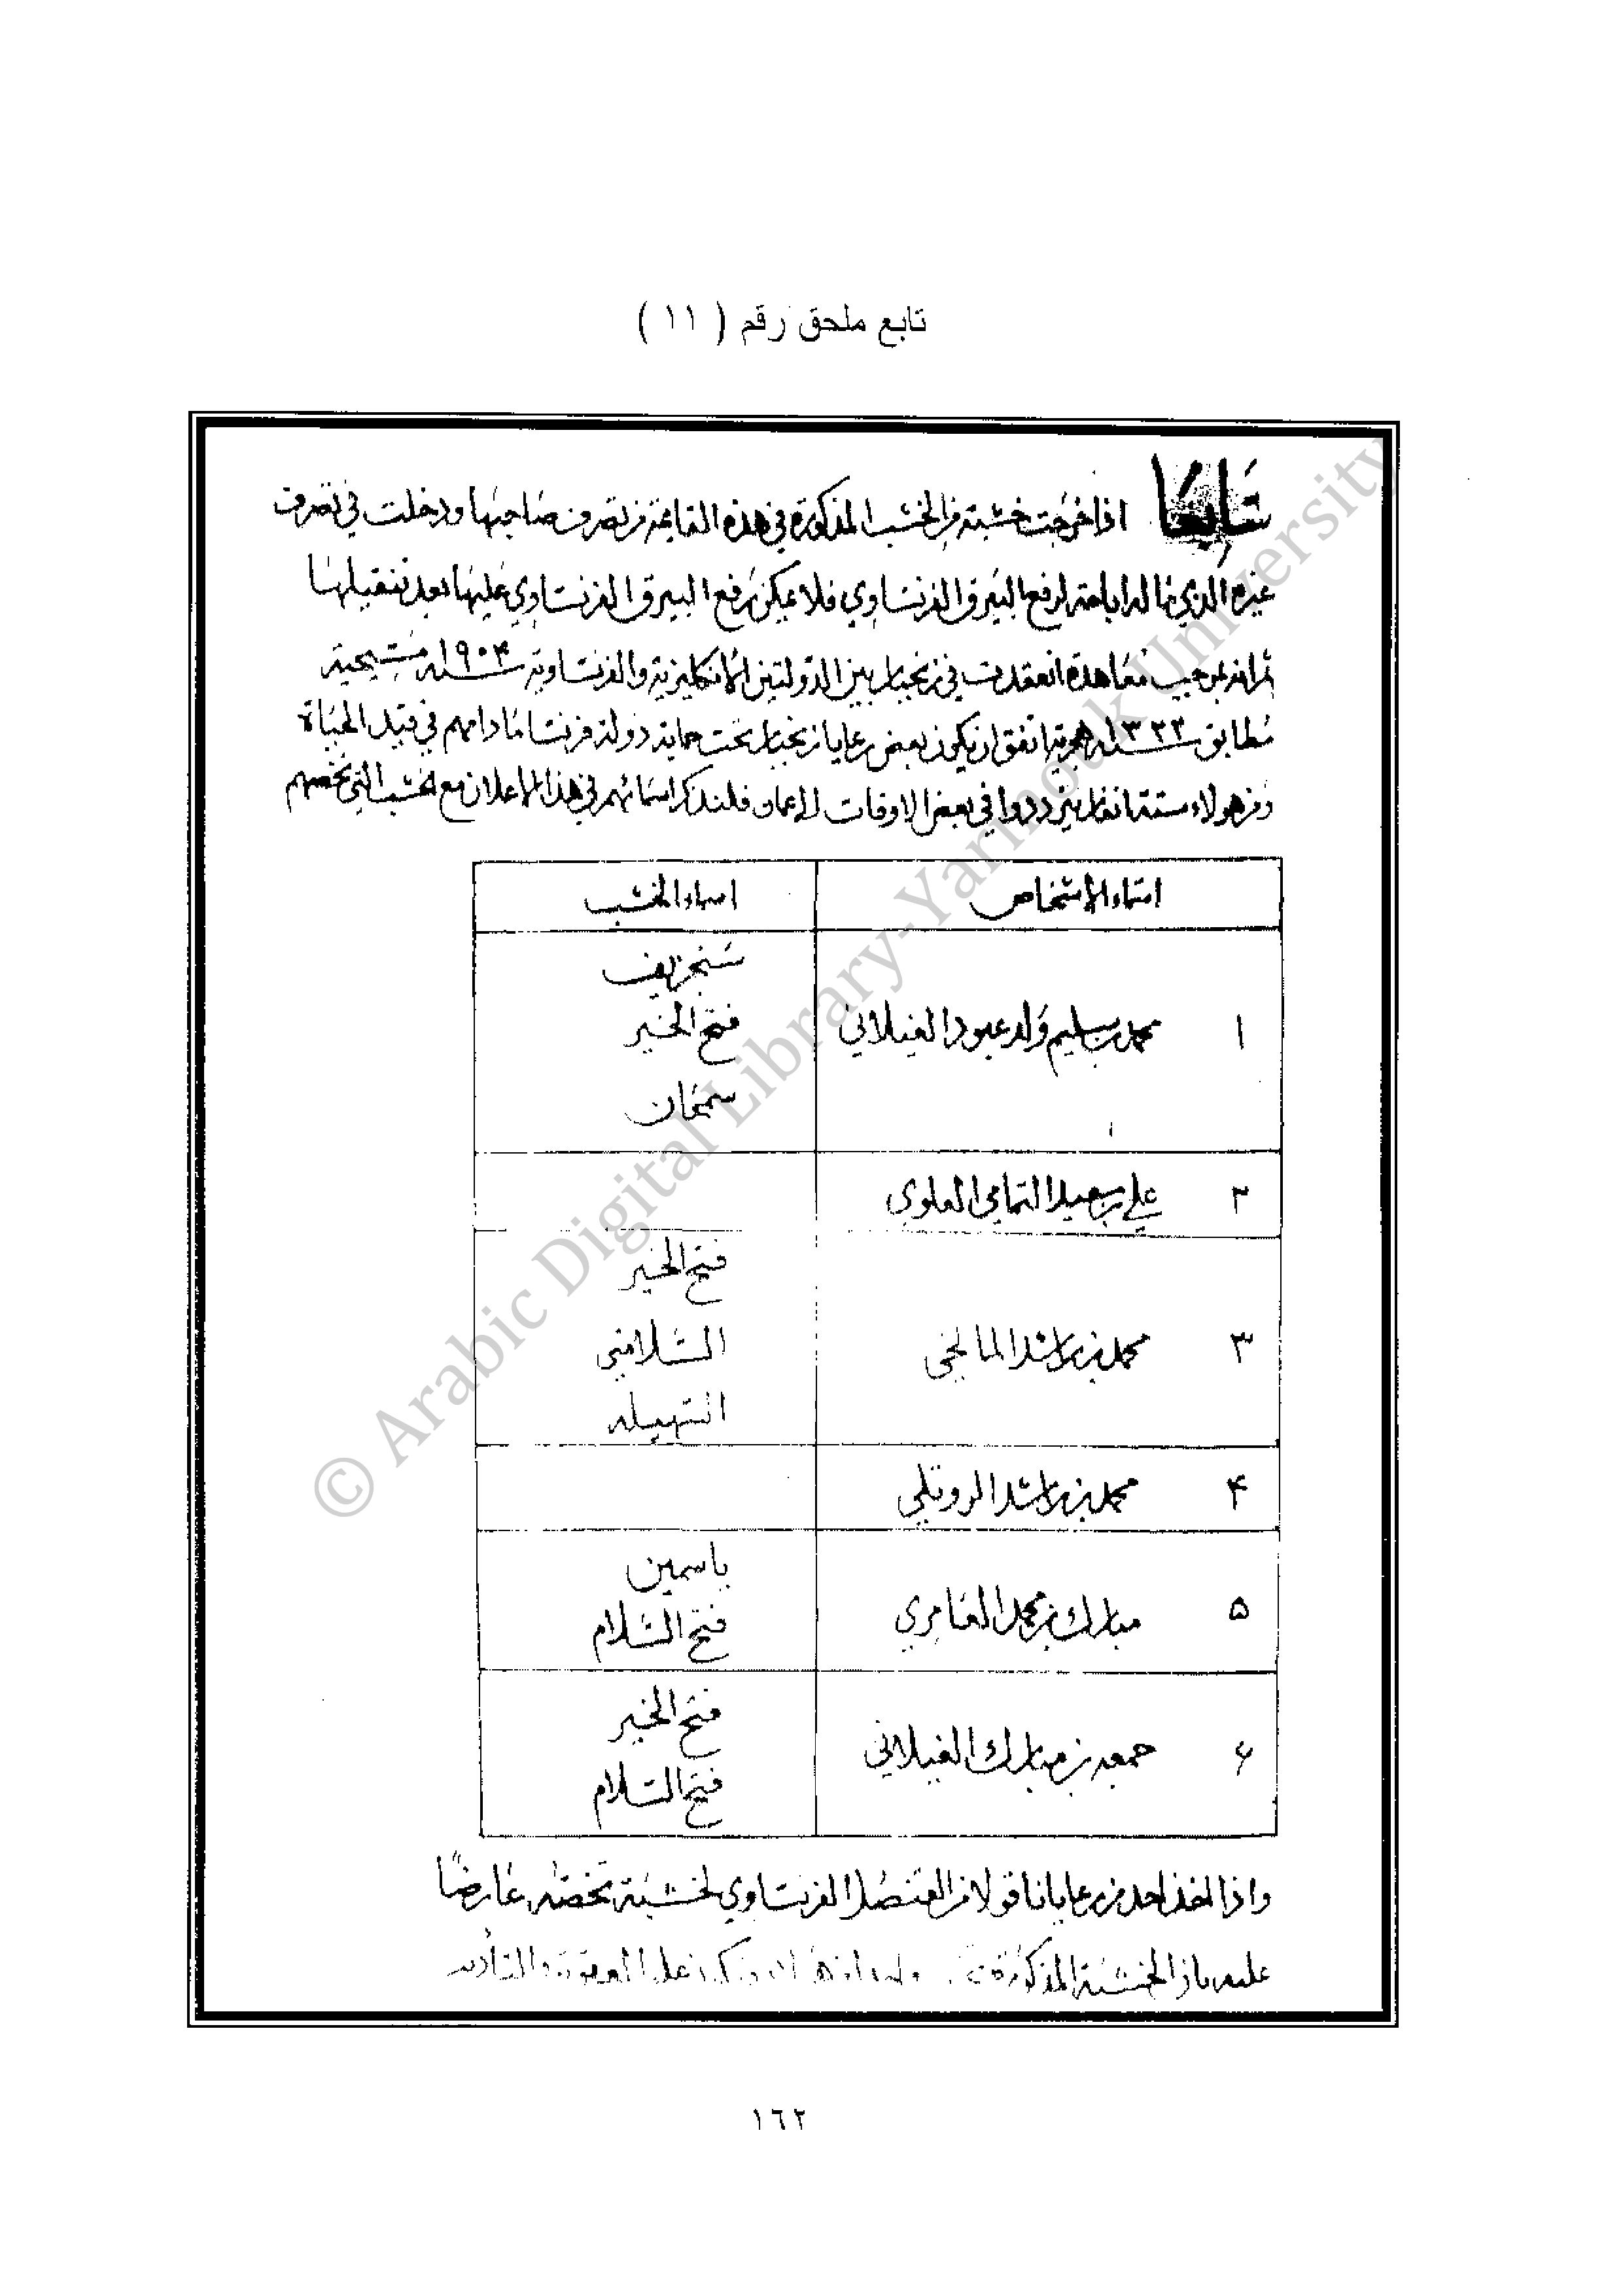 تابع ملحق رقم ( ١١ )
سابعًا اذا خرجت خشبة من الخشب المذكورة في هذه القايمة من تصرف صاحبها ودخلت في تصرف
غيره الذي ما له اباحة لرفع البيرق الفرنساوي فلا يمكن رفع البيرق الفرنساوي عليها بعد
ثم انه بموجب معاهدة انعقدت في زنجبار بين الدولتين الانكليزية والفرنساوية سنة ١٩٠٤ مسيحية
مطابق سنة ١٣٢٢ هجرية اتفق ان يكون بعض رعايا زنجبار تحت حماية دولة فرنسا ما دامهم في قيد الحياة
ومن هولاء ستة انفار يترددوا في بعض الاوقات الى عمان فلنذكر اسمائهم في هذا الاعلان مع الخشب التي تخصهم
اسماء الاشخاص
اسماء الخشب
١ محمد بن سليم ولد عبود الغيلاني
فتح الخير
سمحان
٢ علي بن العلوي
٣ محمد بن راشد
فتح الخير
السلامتي
السهيله
۴ محمد بن راشد
۵ مبارك بن محمد العامري
ياسمين
فتح السلام
۶ جمعه بن مبارك الغيلاني
فتح الخير
فتح السلام
واذا اخذ احد من رعايانا قولا من القنصل الفرنساوي لخشبة تخصه عارضًا
عليه بان الخشبة المذكورة
١٦٢
© Arabic Digital Library-Yarmouk University